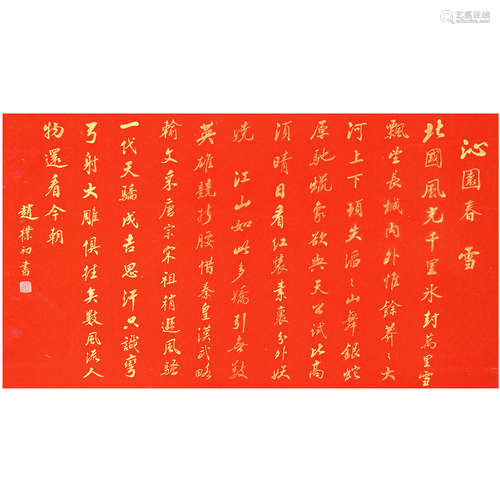 沁園春 雪
北國風光千里冰封萬里雪
飄望長城內外惟餘莽莽大
河上下頓失滔滔山舞銀蛇
原馳蠟象欲與天公試比高
須晴日看紅裝素裹分外妖
嬈 江山如此多嬌引無數
英雄競折腰惜秦皇漢武略
輸文采唐宗宋祖稍遜風騷
一代天驕成吉思汗只識彎
弓射大雕俱往矣數風流人
物還看今朝
趙樸初書
艺狐在线